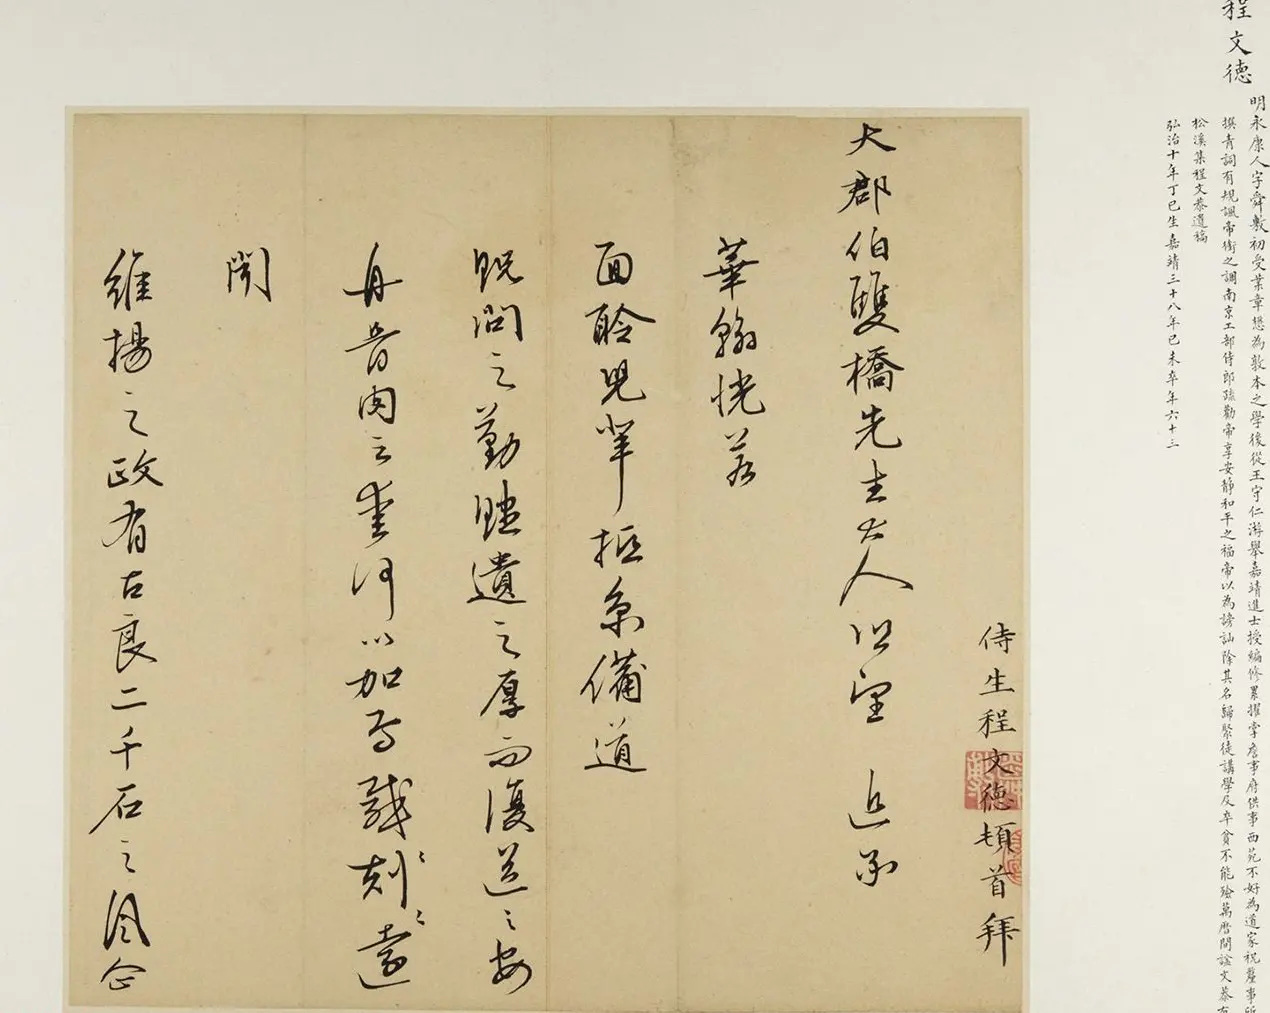 程文德
明永康人字舜敷初受業章懋為敦本之學後從王守仁游舉嘉靖進士授編修累擢掌詹事府供事西苑不好為道家祝釐事所
撰青詞有規諷帝銜之調南京工部侍郎疏勸帝享安靜和平之福帝以為謗訕除其名歸聚徒講學及卒貧不能殮萬曆間謚文恭有
松溪集程文恭遺稿
弘治十年丁巳生嘉靖三十八年己未卒年六十三
侍生程文德頓首拜
大郡伯雙橋先生大人 近承
華翰恍若
面聆兒輩抵京備道
貺問之勤賍遺之厚而復送之安
舟骨肉之愛何以加焉戢刻戢刻遠
聞
維揚之政有古良二千石之風企